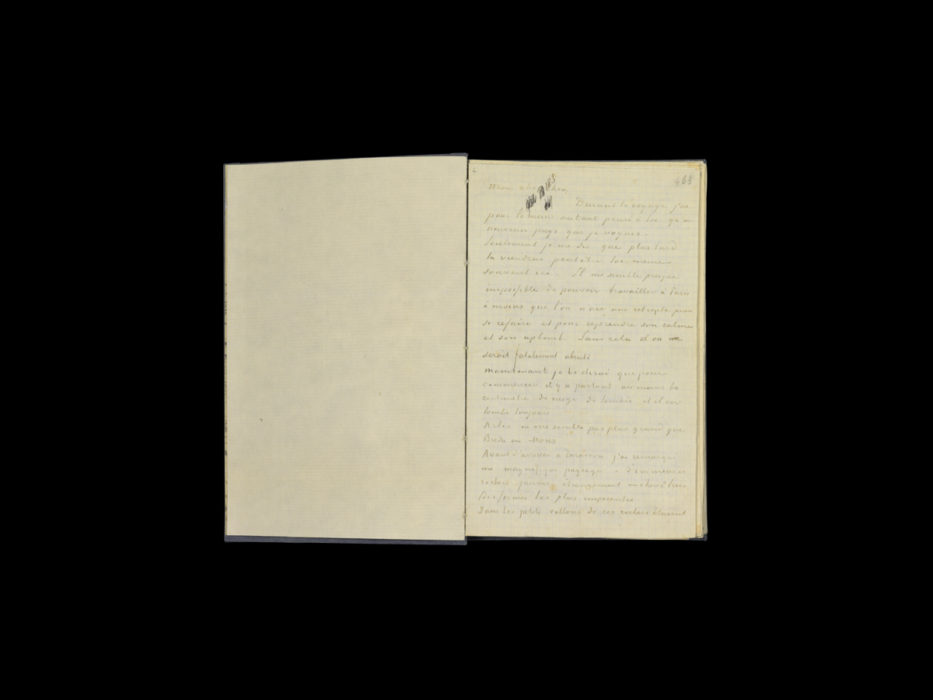 463
Mon cher Theo,
Durant le voyage j'ai
pour le moins autant pensé à toi qu'au
nouveau pays que je voyais.
Seulement je me dis que plus tard
tu viendras peutêtre toi-même
souvent ici. Il me semble presque
impossible de pouvoir travailler à Paris
à moins que l'on n'ait une retraite pour
se refaire et pour reprendre son calme
et son aplomb. Sans cela on
serait fatalement abruti
maintenant je te dirai que pour
commencer il y a partout au moins
de neige de tombée et il en
tombe toujours
Arles ne me semble pas plus grand que
Breda ou Mons
Avant d'arriver à Tarascon j'ai remarqué
un magnifique paysage d'immenses
rochers jaunes étrangement enchevêtrés
des formes les plus imposantes
Dans les petits vallons de ces rochers étaient